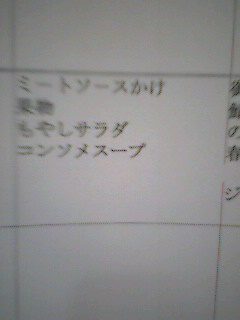 ミートソースかけ
果物
もやしサラダ
コンソメスープ
の
春
ジ